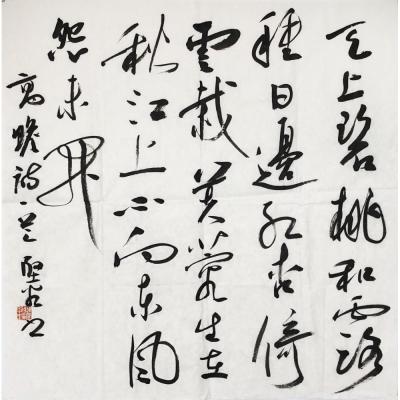 天上碧桃和露
種日邊红杏倚
雲栽芙蓉生在
秋江上不向东风
怨未开
高蟾诗一首